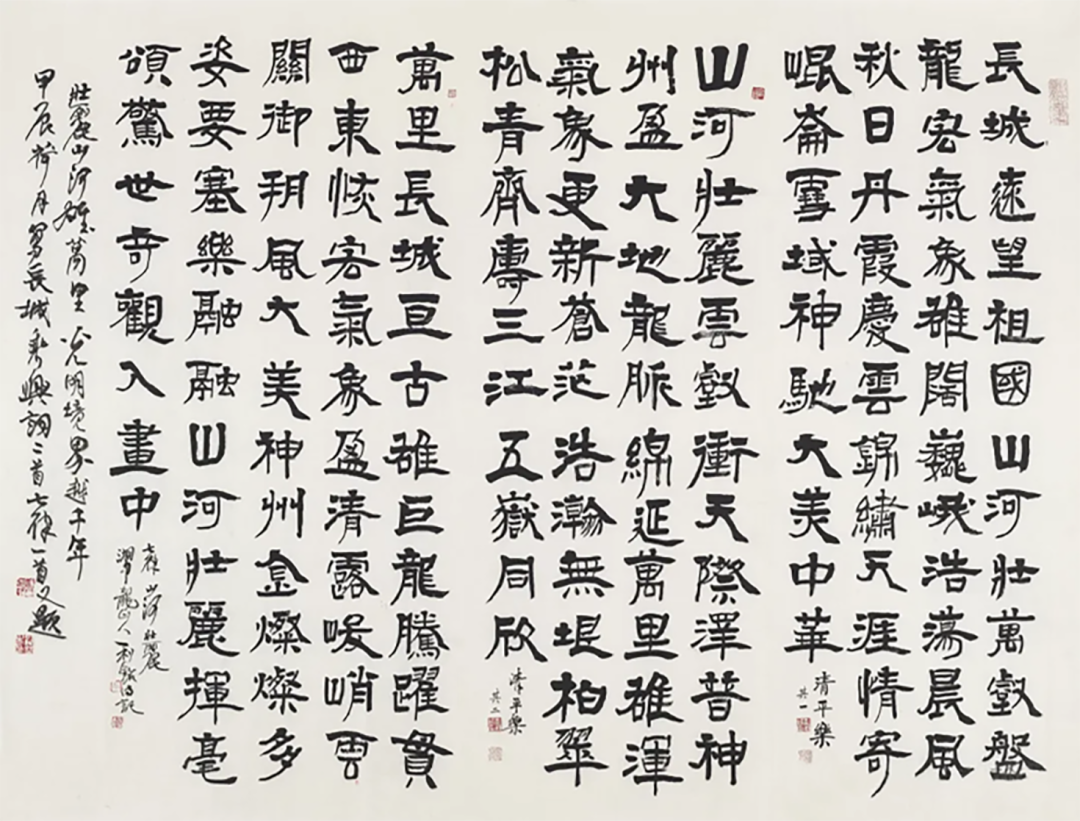 長城遠望祖國山河壯萬壑盤
龍宏氣象雄闊巍峨浩蕩晨風
秋日丹霞慶雲錦繡天涯情寄
崐崙雪域神馳大美中華
清平樂
其一
山河壯麗雲壑衝天際澤普神
州盈大地龍脈綿延萬里雄渾
氣象更新蒼茫浩瀚無垠柏翠
松青齊壽三江五嶽同欣
清平樂
其二
萬里長城亘古雄巨龍騰躍貫
西東恢宏氣象盈清露峻峭雲
關御朔風大美神州金燦燦多
姿要塞樂融融山河壯麗揮毫
頌驚世奇觀入畫中
七律 山河壯麗
龍山人
壯麗山河雄萬里 光明境界越千年
甲辰荷月長城乘興詞二首七律一首又題